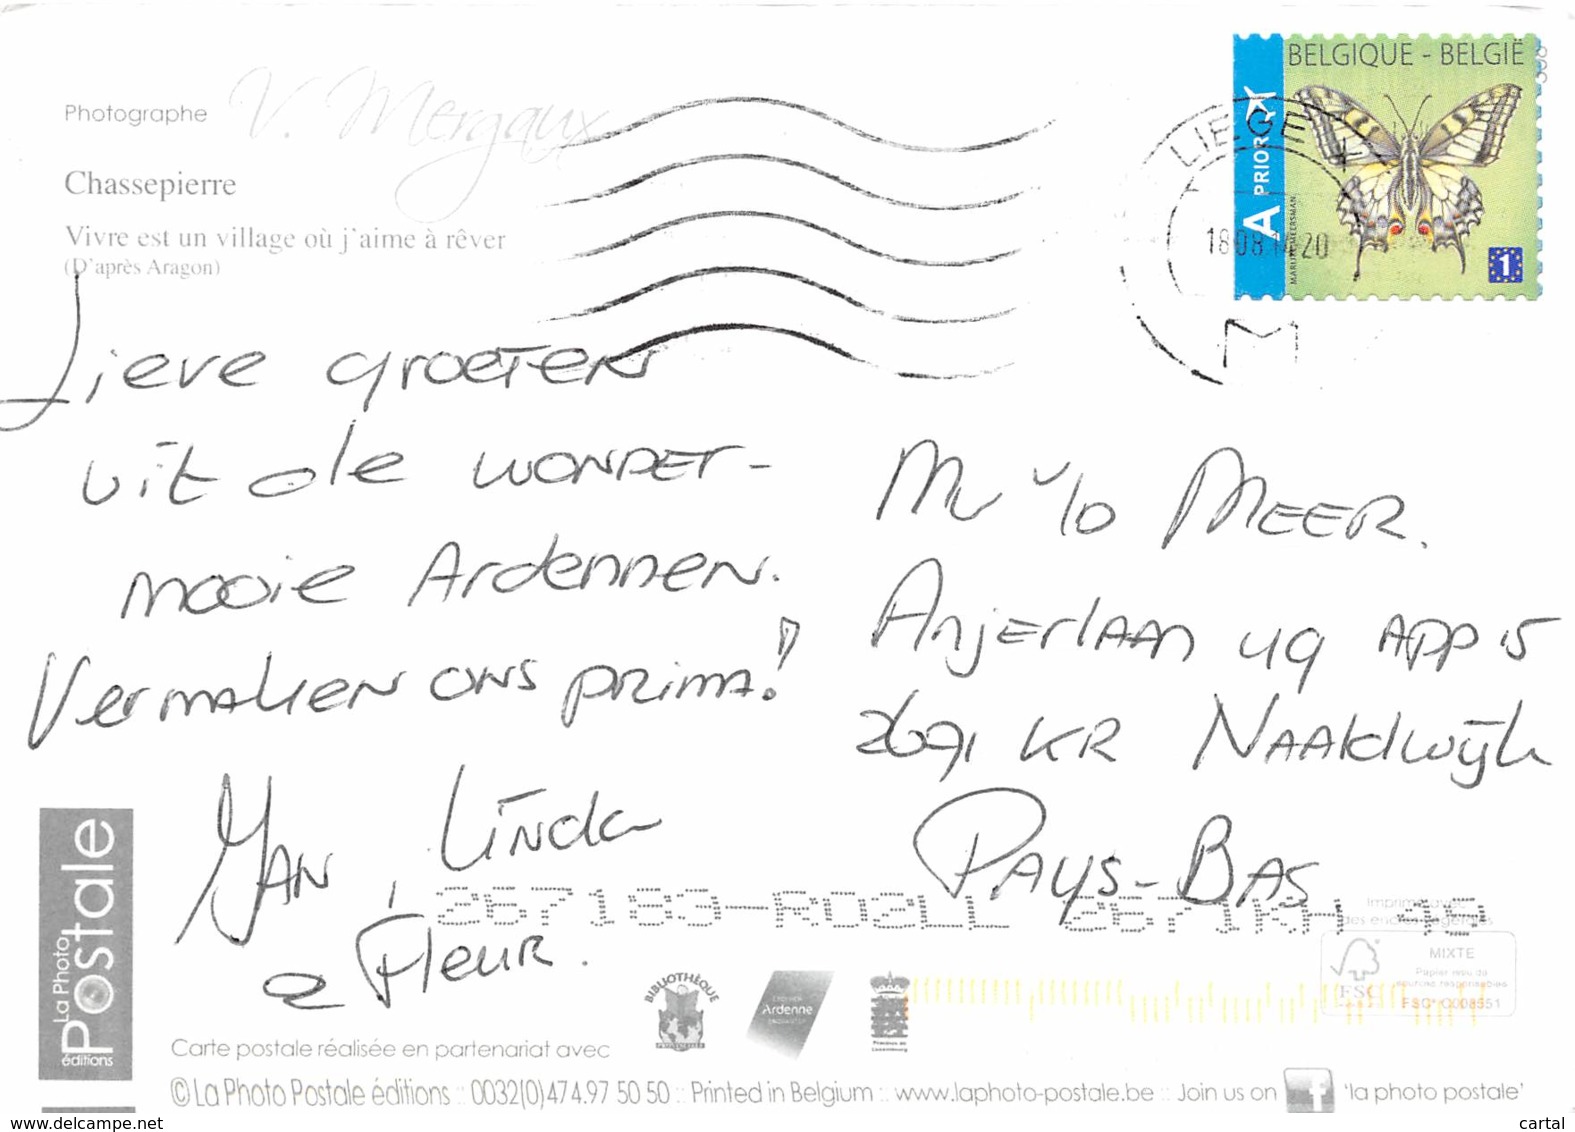 Photographe V. Mergaux
Chassepierre
Vivre est un village où j'aime à rêver
(D'après Aragon)
BELGIQUE - BELGIË
A PRIOR
1
LIEGE
M
Lieve groeten
uit de wonder-
mooie Ardennen.
Vermaken ons prima!
Jan, Linda
& Fleur.
M v/d Meer.
Anjerlaan 49 App 15
2691 KR Naaldwijk
Pays-Bas
267183-RD2LL 2671KH 49
Imprimé avec
des encres végétales
MIXTE
Papier issu de
sources responsables
FSC® C008551
FSC
La Photo
Postale
éditions
BIBLIOTHÈQUE
Ardenne
Province de
Luxembourg
Carte postale réalisée en partenariat avec
© La Photo Postale éditions :: 0032(0)474.97 50 50 :: Printed in Belgium :: www.laphoto-postale.be :: Join us on f 'la photo postale'
www.delcampe.net
cartal